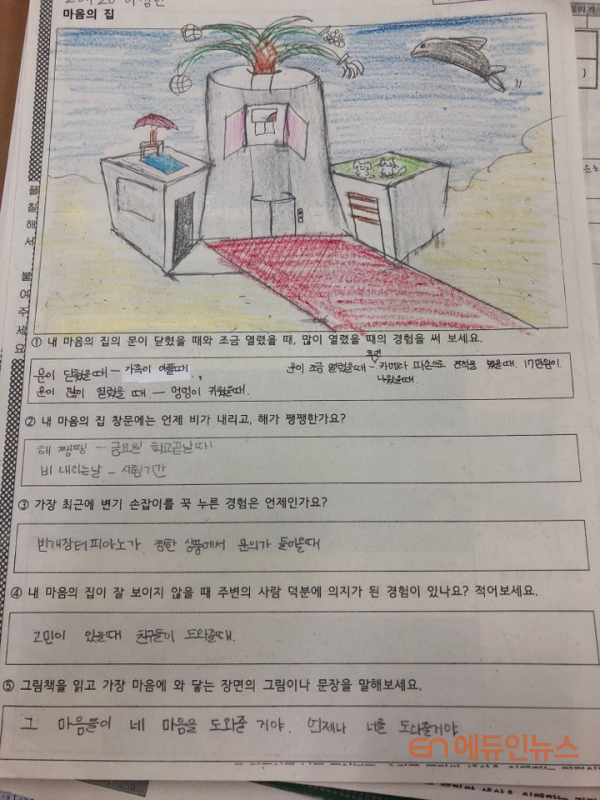 마음의 집
① 내 마음의 집의 문이 닫혔을 때와 조금 열렸을 때, 많이 열렸을 때의 경험을 써 보세요.
문이 닫혔을때 - 가족이 아플때,
문이 조금 열렸을때 - 카메라 파손으로 견적을 냈을때. 17만원이
나왔을때
문이 많이 열렸을 때. - 멍멍이 키웠을때.
② 내 마음의 집 창문에는 언제 비가 내리고, 해가 쨍쨍한가요?
해 쨍쨍 - 금요일 학교끝날때!
비 내리는날 - 시험기간
③ 가장 최근에 변기 손잡이를 꾹 누른 경험은 언제인가요?
번개장터피아노가 찜한 상품에서 문의가 들어올때
④ 내 마음의 집이 잘 보이지 않을 때 주변의 사람 덕분에 의지가 된 경험이 있나요? 적어보세요.
고민이 있을때 친구들이 도와줄때.
⑤ 그림책을 읽고 가장 마음에 와 닿는 장면의 그림이나 문장을 말해보세요.
그 마음들이 네 마음을 도와줄 거야. 언제나 너를 도와줄거야
에듀인뉴스